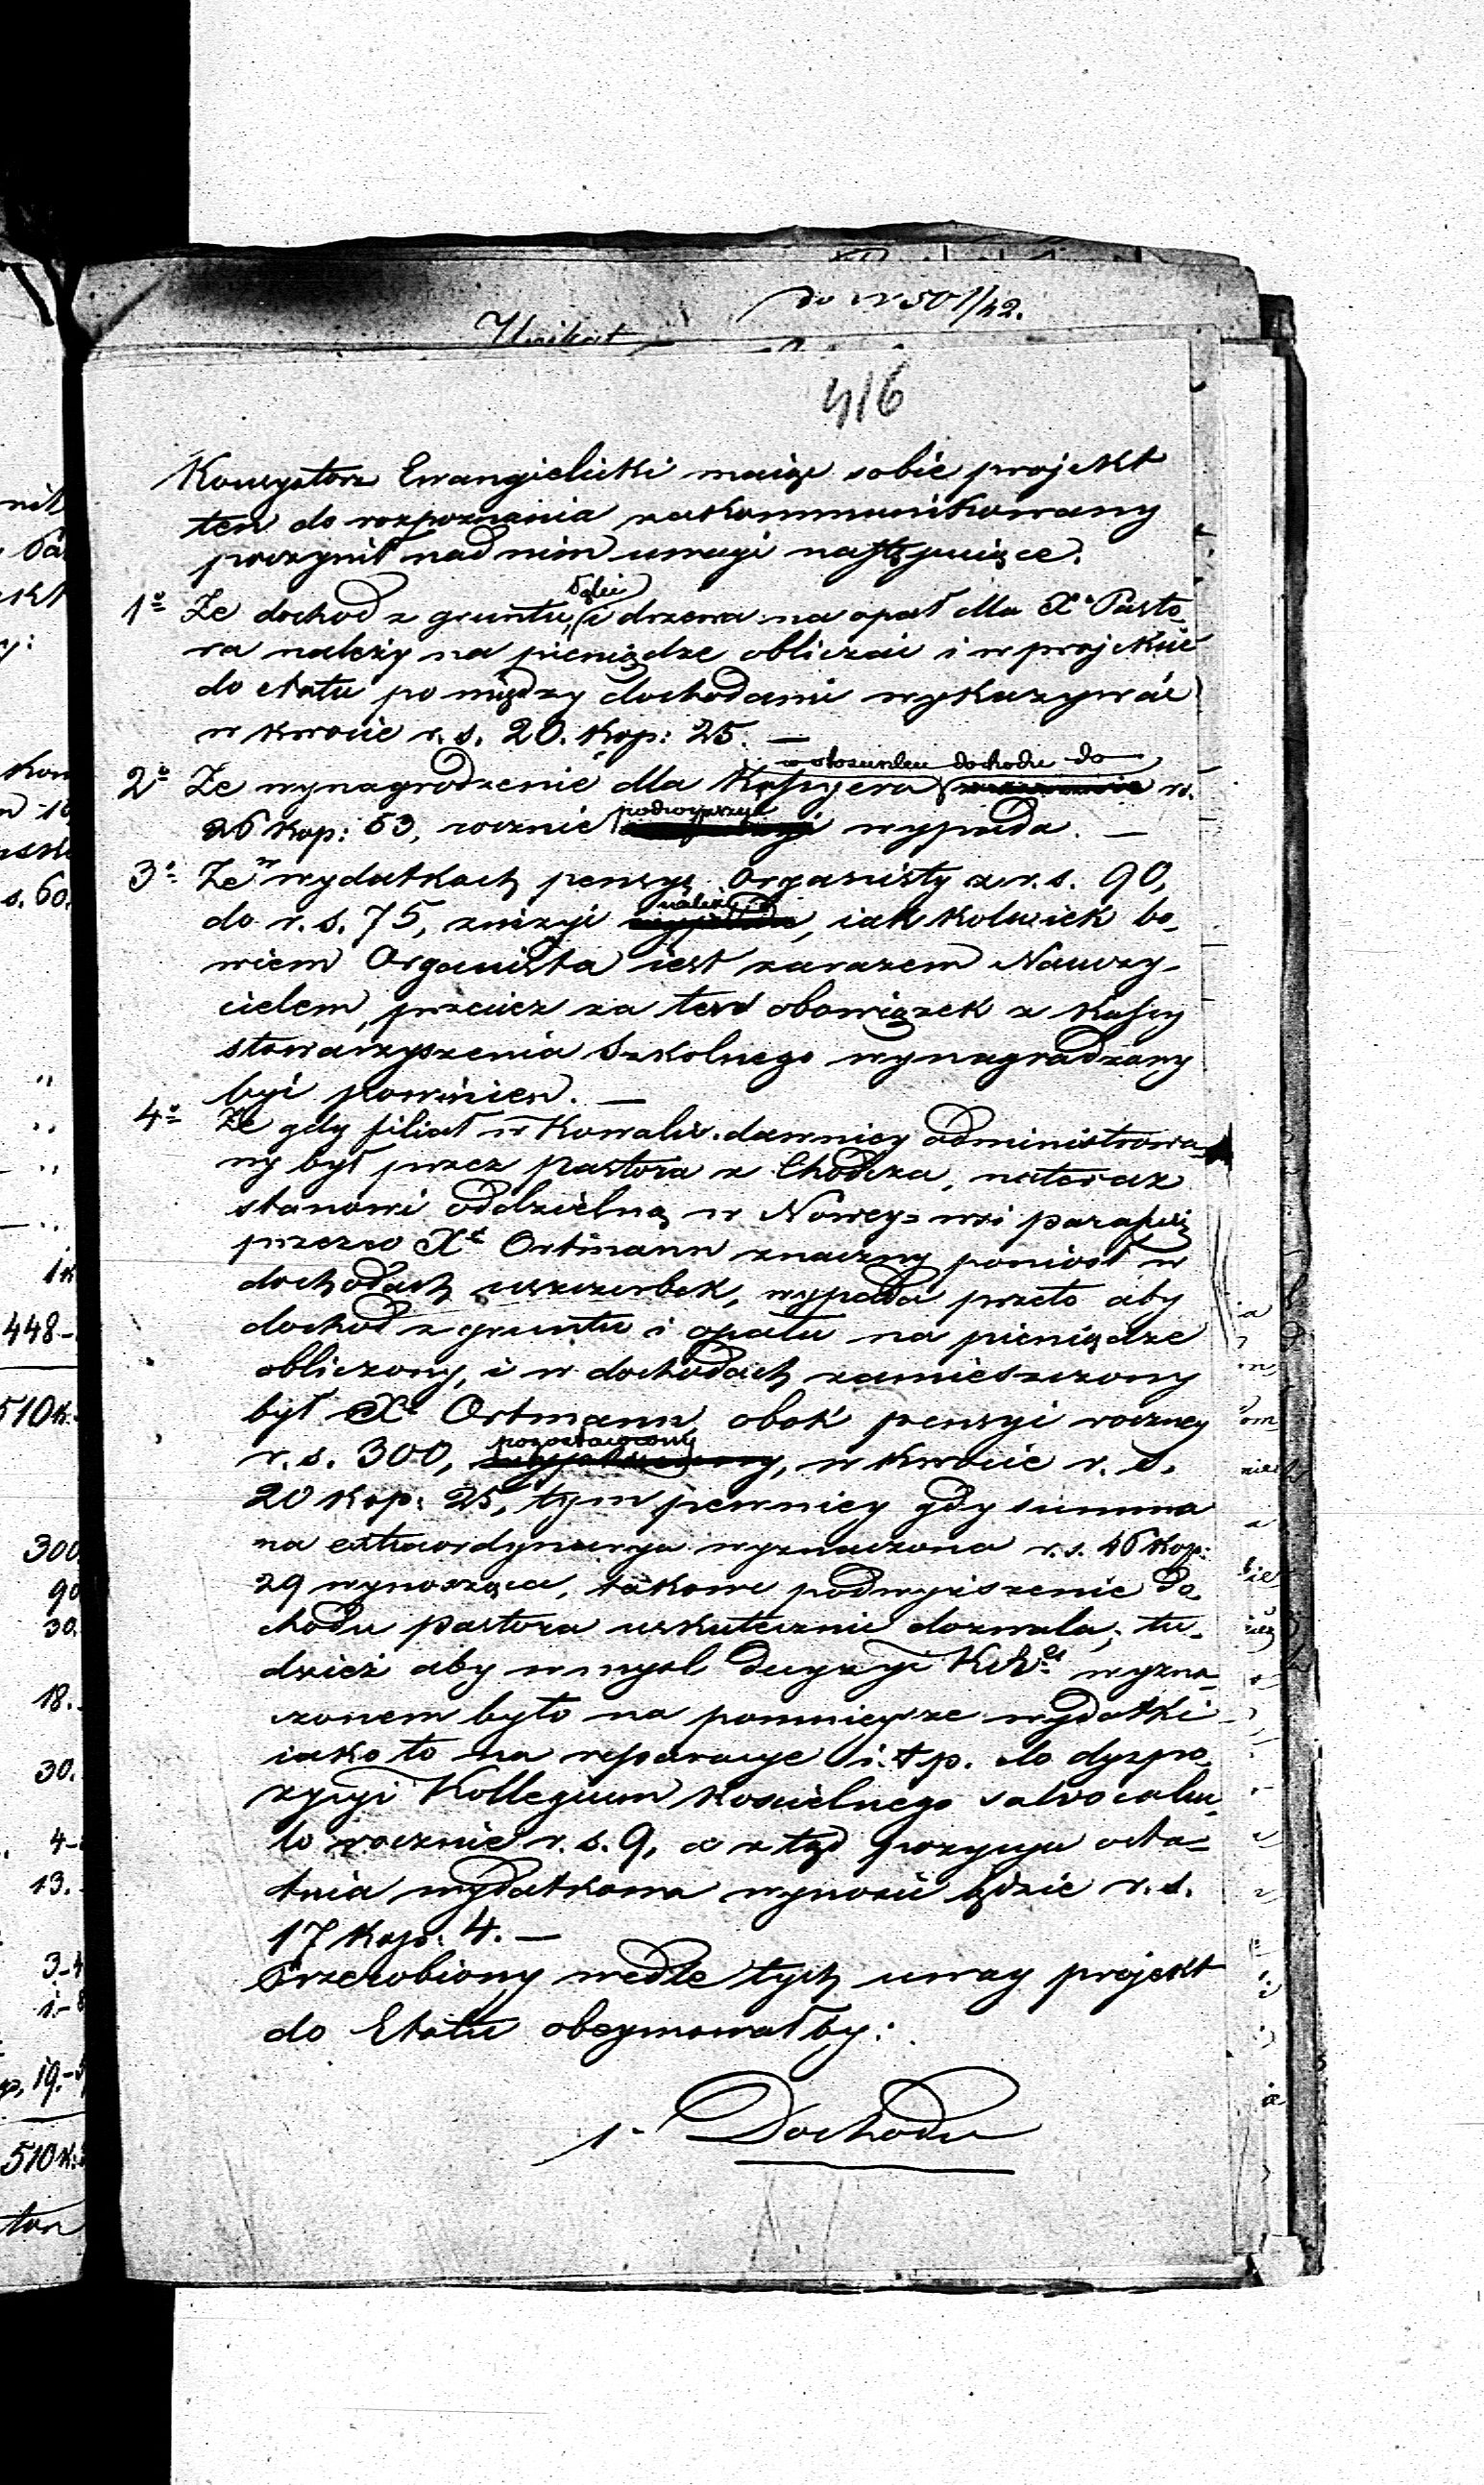 do N 501/42.
Unikat
416
Konsystorz Ewangielicki maiąc sobie projekt
ten do rozpoznania zakommunikowany
poczynił nad nim uwagi następuiące.
1o Ze dochod z gruntu, i drzewa na opał dla Xa Pasto-
ra należy na pieniądze obliczać i w projekcie
do etatu po między dochodami wykazywać
w kwocie r. s. 20. kop: 25. —
w stosunku dochodu do
2o Ze wynagrodzenie dla Kassyera rs.
podwyższyć
26 kop: 53, rocznie wypada. —
3o Ze w wydatkach pensyą Organisty z r. s. 90,
należy
do r. s. 75, zniżyć, iak kolwiek bo-
wiem Organista iest zarazem Nauczy-
cielem, przecież za ten obowiązek z kassy
stowarzyszenia Szkolnego wynagradzany
być powinien. —
4o Ze gdy filiał w Kowalu dawniey administrowa-
ny był przez Pastora z Chodcza, na teraz
stanowi oddzielną w Nowey-wsi parafiią
przez co Xdz Ortmann znaczny poniosł w
dochodach uszczerbek, wypada przeto aby
dochod z gruntu i opału na pieniądze
obliczony, i w dochodach zamieszczony
był Xo Ortmann obok pensyi roczney
pozostawiony
r. s. 300, w kwocie r. s.
20 kop: 25, tym pewniey gdy summa
na extraordynarya wyznaczona r. s. 46 kop:
29 wynosząca, takowe podwyższenie do-
chodu pastora uskutecznić dozwala; tu-
dzież aby w mysl decyzyi wyzna-
czonem było na pomnieysze wydatki
iako to na reparacye i. t p. do dyspo-
zycyi Kollegium Koscielnego salvo calcu-
lo rocznie r. s. 9, a z tąd pozycya osta-
tnia wydatkowa wynosić będzie r. s.
17 kop: 4. —
Przerobiony wedle tych uwag projekt
do Etatu obeymował by:
1. Dochodu